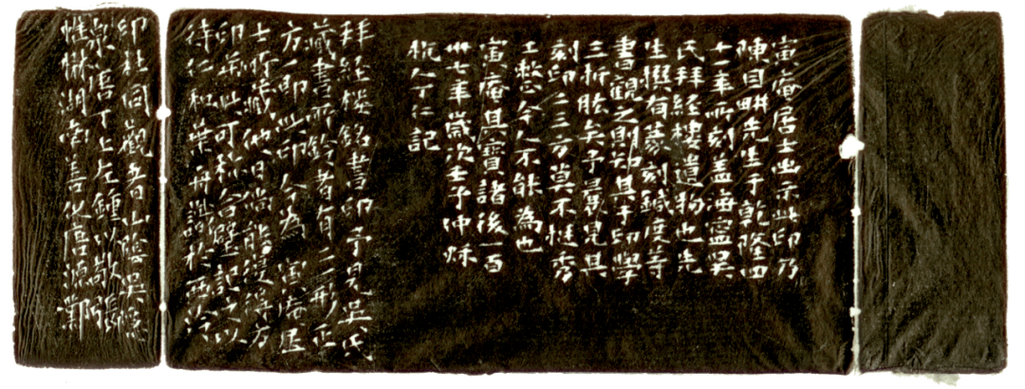 寅庵居士出示此印乃
陳目畊先生于乾隆四
十一年所刻蓋海寧吳
氏拜經樓遺物也先
生撰有篆刻鍼度等
書觀之則知其于印學
三折肱矣予曩見其
刻印二三方莫不挺秀
工整今人不能為也
寅庵其寶諸後一百
卅七年歲次壬子仲秌
杭人丁仁記
拜經樓銘書印予見吳氏
藏書所鈐者有二一形正
方一即此印今為寅庵居
士所藏他日尚能復得方
印此可称合璧記之以
待仁和葉舟識於西泠
印社同觀者山陰吳隱
泉唐丁上左鍾以敬
惟楙湖南善化唐源鄴